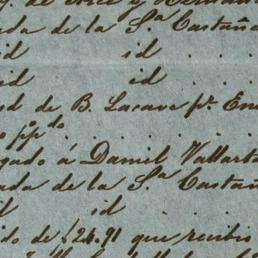 de la Sª Castaña
id id
id id
de B. Lacave pr
ppdo
gado á Daniel Vallart
ada de la Sª Castañ
d id
ido de £24.91 que recibio